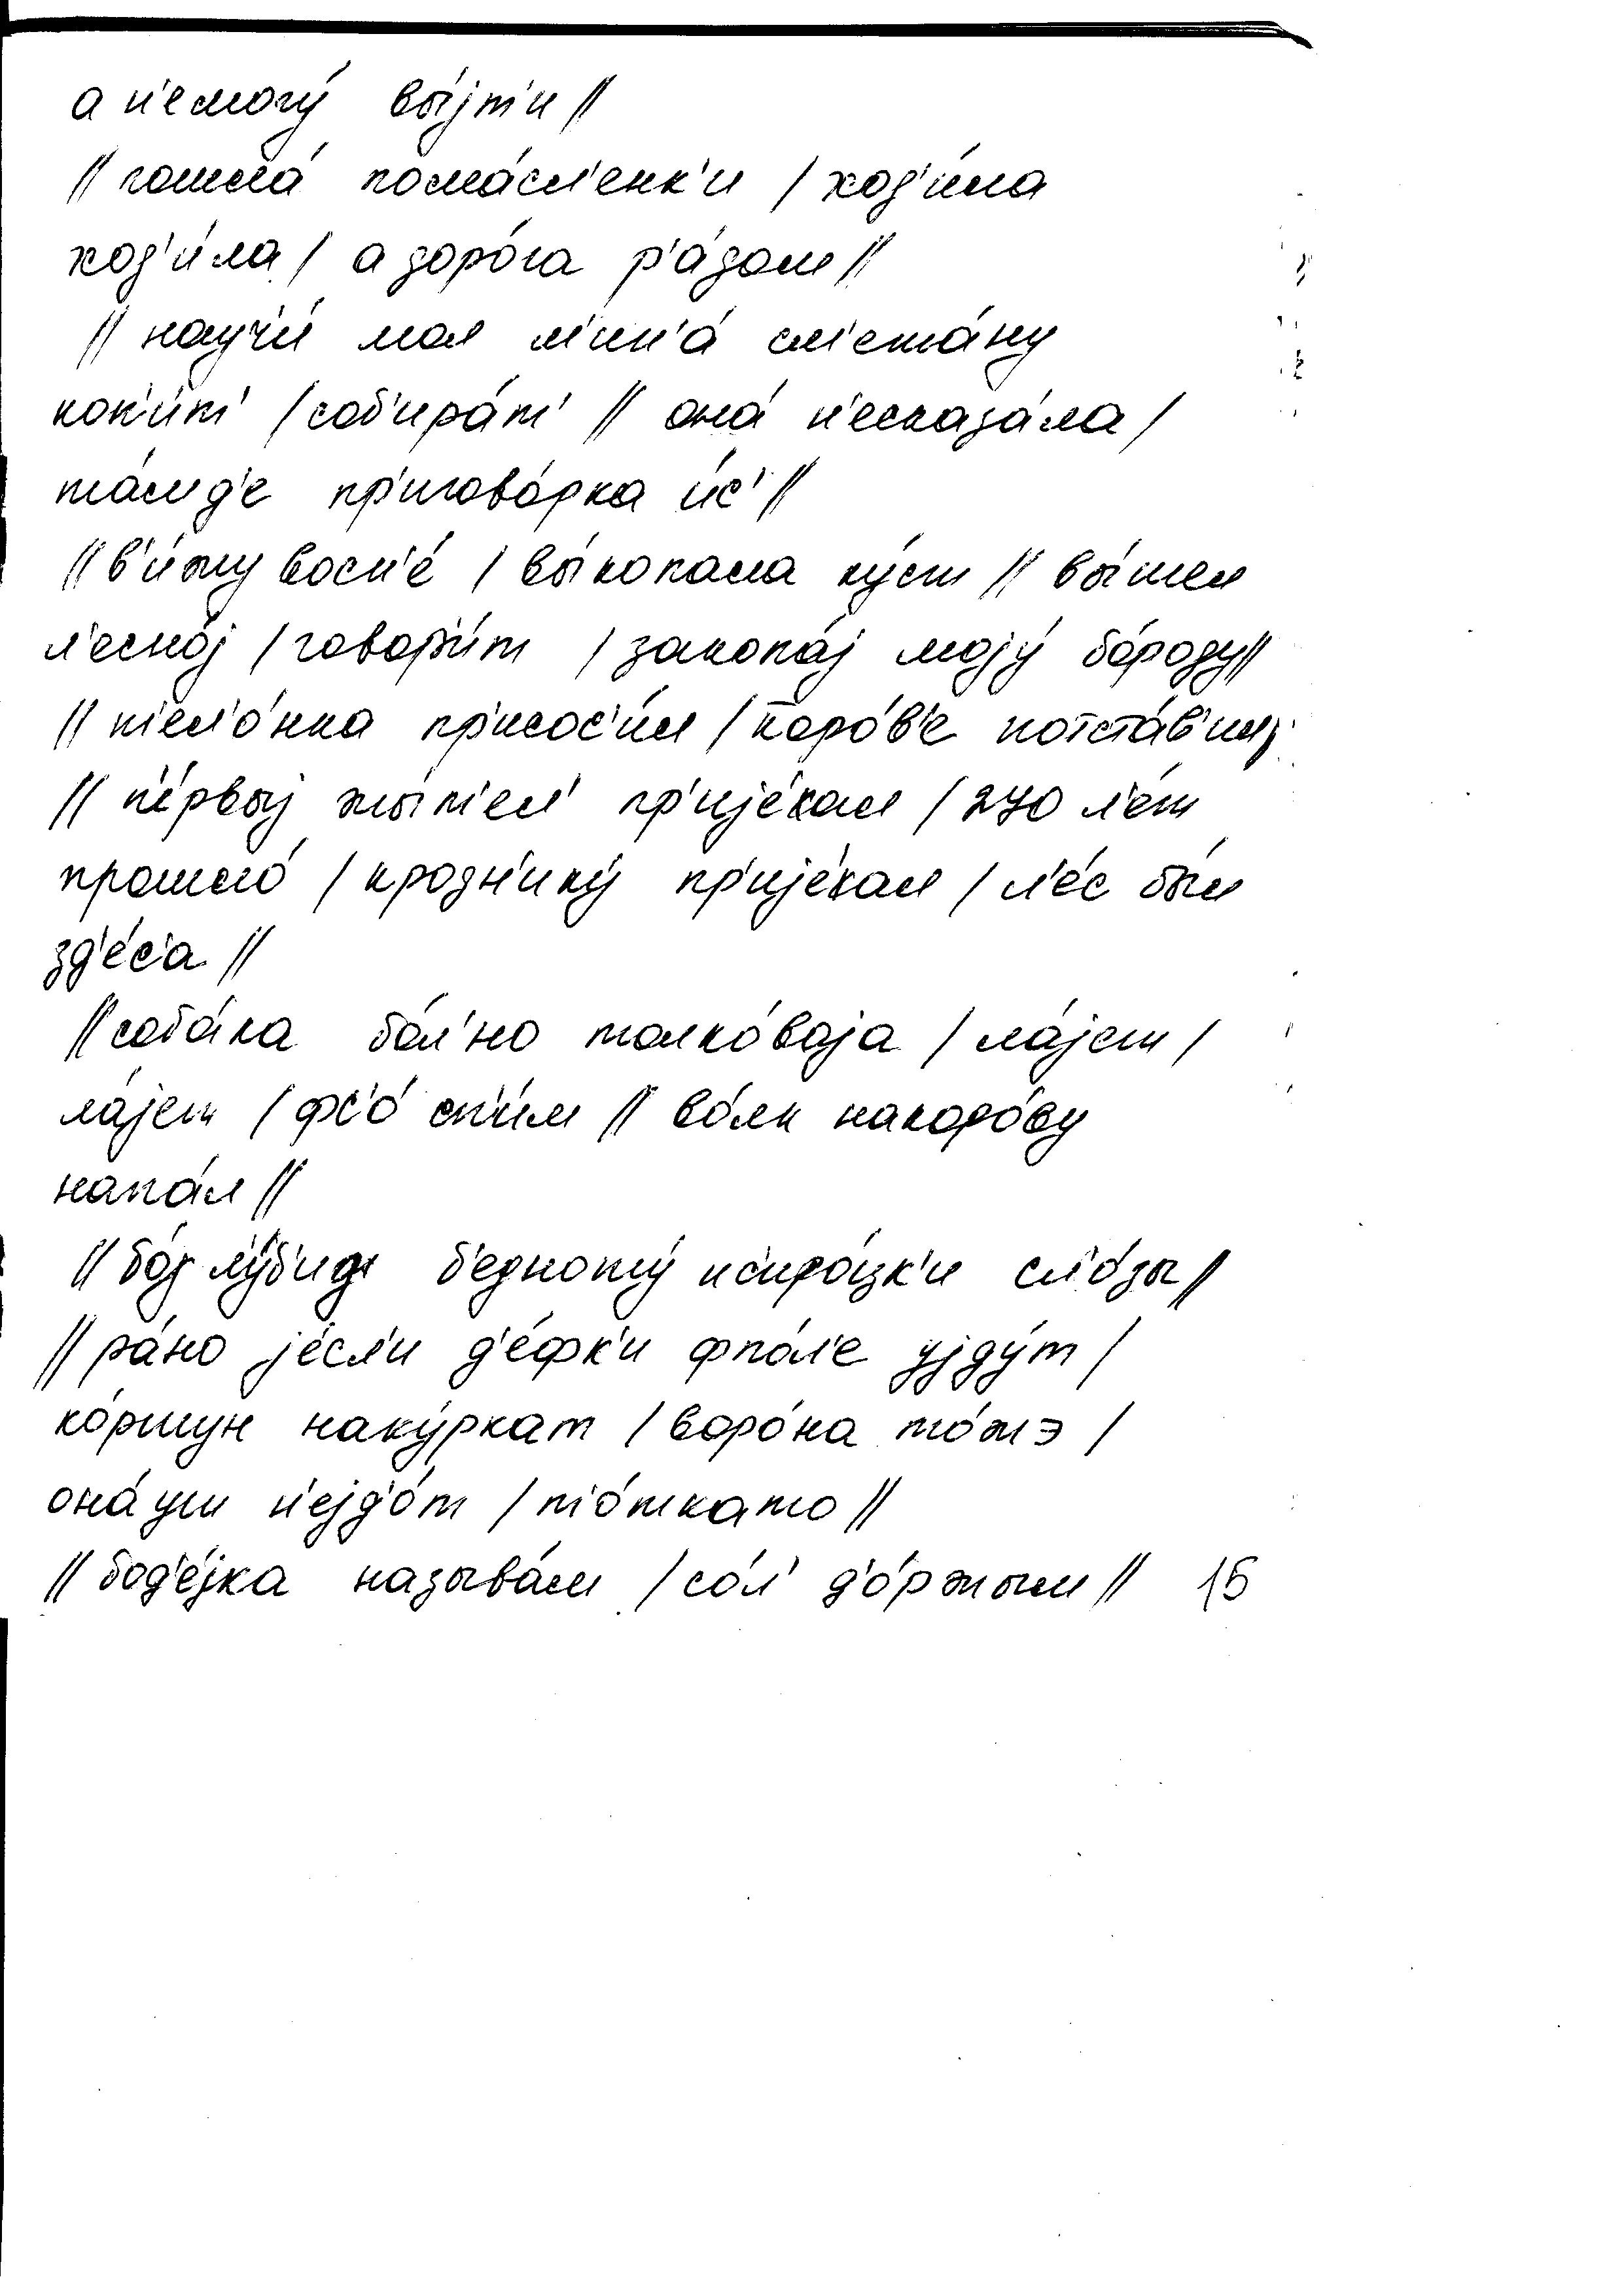 а н'емогу́ вы́јт'и //
// пошла́ пома́сл'енк'и / ход'и́ла
ход'и́ла / а доро́га р'а́дом //
// науч'и́ мол м'ин'а́ см'ета́ну
коп'и́т' / соб'ира́т' // она́ н'есказа́ла /
та́мд'е пр'игово́рка йс' //
// в'и́жу восн'е́ / вы́копала ку́ст // вы́шел
л'есно́ј / говор'и́т / закопа́ј моју́ бо́роду //
// т'ел'о́нка пр'инос'и́м / коро́в'е потста́в'им /
// п'е́рвыј жы́т'ел' пр'ије́хал / 270 л'е́т
прошло́ / кродн'ику́ пр'ије́хал / л'е́с бы́л
зд'е́с'а //
// соба́ка бо́л'но толко́ваја / ла́јет /
ла́јет / фс'о́ сп'и́м // во́лк накоро́ву
напа́л //
// бо́г л'у́б'ид б'едноту́ ис'иро́цк'и сл'о́зы //
// ра́но је́сл'и д'е́фк'и фпо́л'е ујду́т /
ко́ршун наку́ркат / воро́на то́жэ /
она́уш н'ејд'о́т / т'о́ткато //
// бод'е́јка называ́м / со́л' д'о́ржым // 15